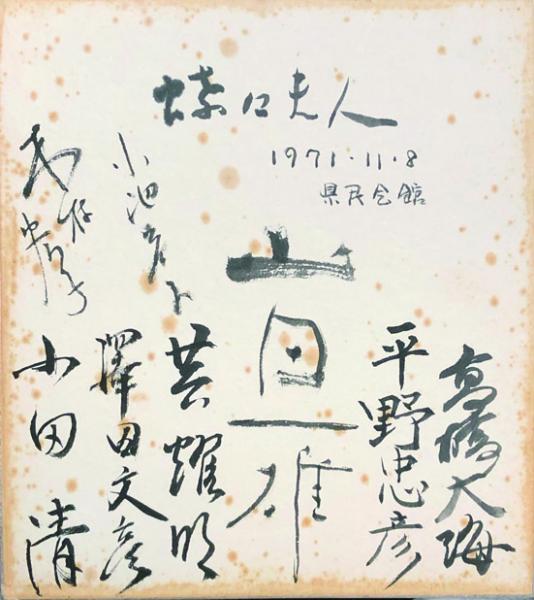 蝶々夫人
1971.11.8
県民会館
高橋大海
平野忠彦
山田一雄
芸耀明
小池
澤田文彦
小田 清